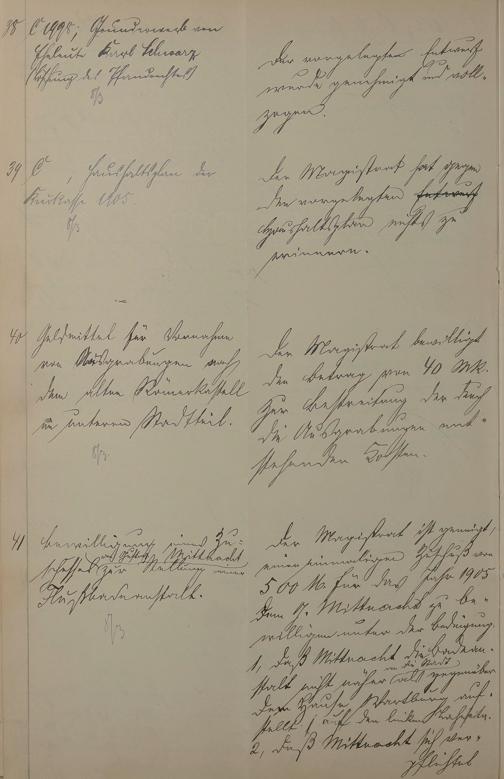 38 C 1998; Grunderwerb von
Eheleute Karl Schwarz
Löschung des Pfandrechtes
8/3
Der vorgelegte Entwurf
wurde genehmigt und voll-
zogen.
39 C , Haushaltsplan der
Kurkasse 1905.
8/3
Der Magistrat hat gegen
den vorgelegten Entwurf
Haushaltsplan nichts zu
erinnern.
40 Geldmittel für Vornahme
von Ausgrabungen nach
dem alten Römerkastell
im unteren Stadtteil.
8/3
Der Magistrat bewilligt
den Betrag von 40 Mk.
zur Bestreitung der durch
die Ausgrabungen ent-
stehenden Kosten.
41 Bewilligung eines Zu-
schusses Mittnacht
zur Stellung einer
Flußbadeanstalt.
8/3
Der Magistrat ist geneigt,
einen einmaligen Zuschuß von
500 M. für das Jahr 1905
dem Mittnacht zu be-
willigen unter der Bedingung
1, daß Mittnacht die Badean-
stalt nicht näher an die Stadt als gegenüber
dem Hause Wartburg auf-
stellt, auf dem linken
2, daß Mittnacht sich ver-
pflichtet